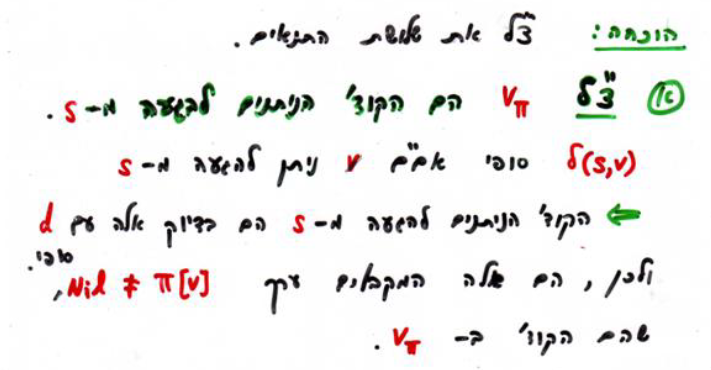 הוכחה: צ"ל את שלושת התנאים.
א צ"ל Vπ הם הקוד' הניתנים להגעה מ-s.
δ(s,v) סופי אם"ם v ניתן להגעה מ-s
⇐ הקוד' הניתנים להגעה מ-s הם בדיוק אלה עם d סופי.
ולכן, הם אלה המקבלים ערך π[v] ≠ Nil,
שהם הקוד' ב-Vπ.